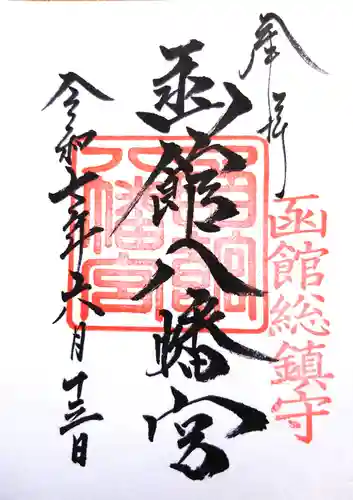 奉拝
函館総鎮守
函館八幡宮
函館八幡宮
令和六年六月十三日